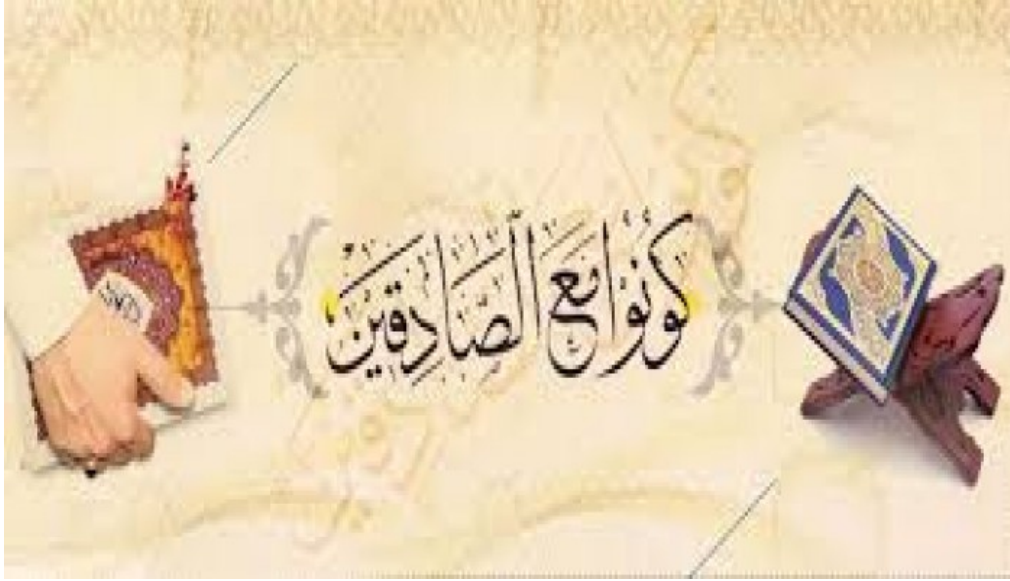 كُونُوا مَعَ الصَّادِقِينَ